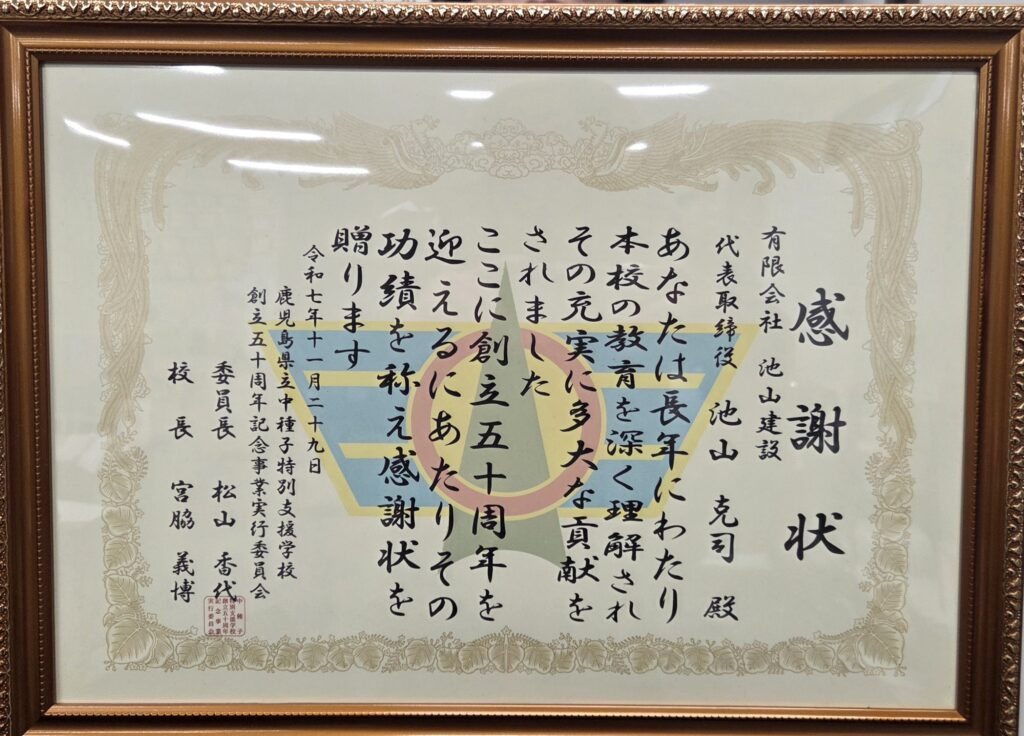 感謝状
有限会社 池山建設
代表取締役 池山 克司 殿
あなたは長年にわたり
本校の教育を深く理解され
その充実に多大な貢献を
されました
ここに創立五十周年を
迎えるにあたりその
功績を称え感謝状を
贈ります
令和七年十一月二十九日
鹿児島県立中種子特別支援学校
創立五十周年記念事業実行委員会
委員長 松山 香代
校長 宮脇 義博
中種子
特別支援学校
創立五十周年
記念事業
実行委員会